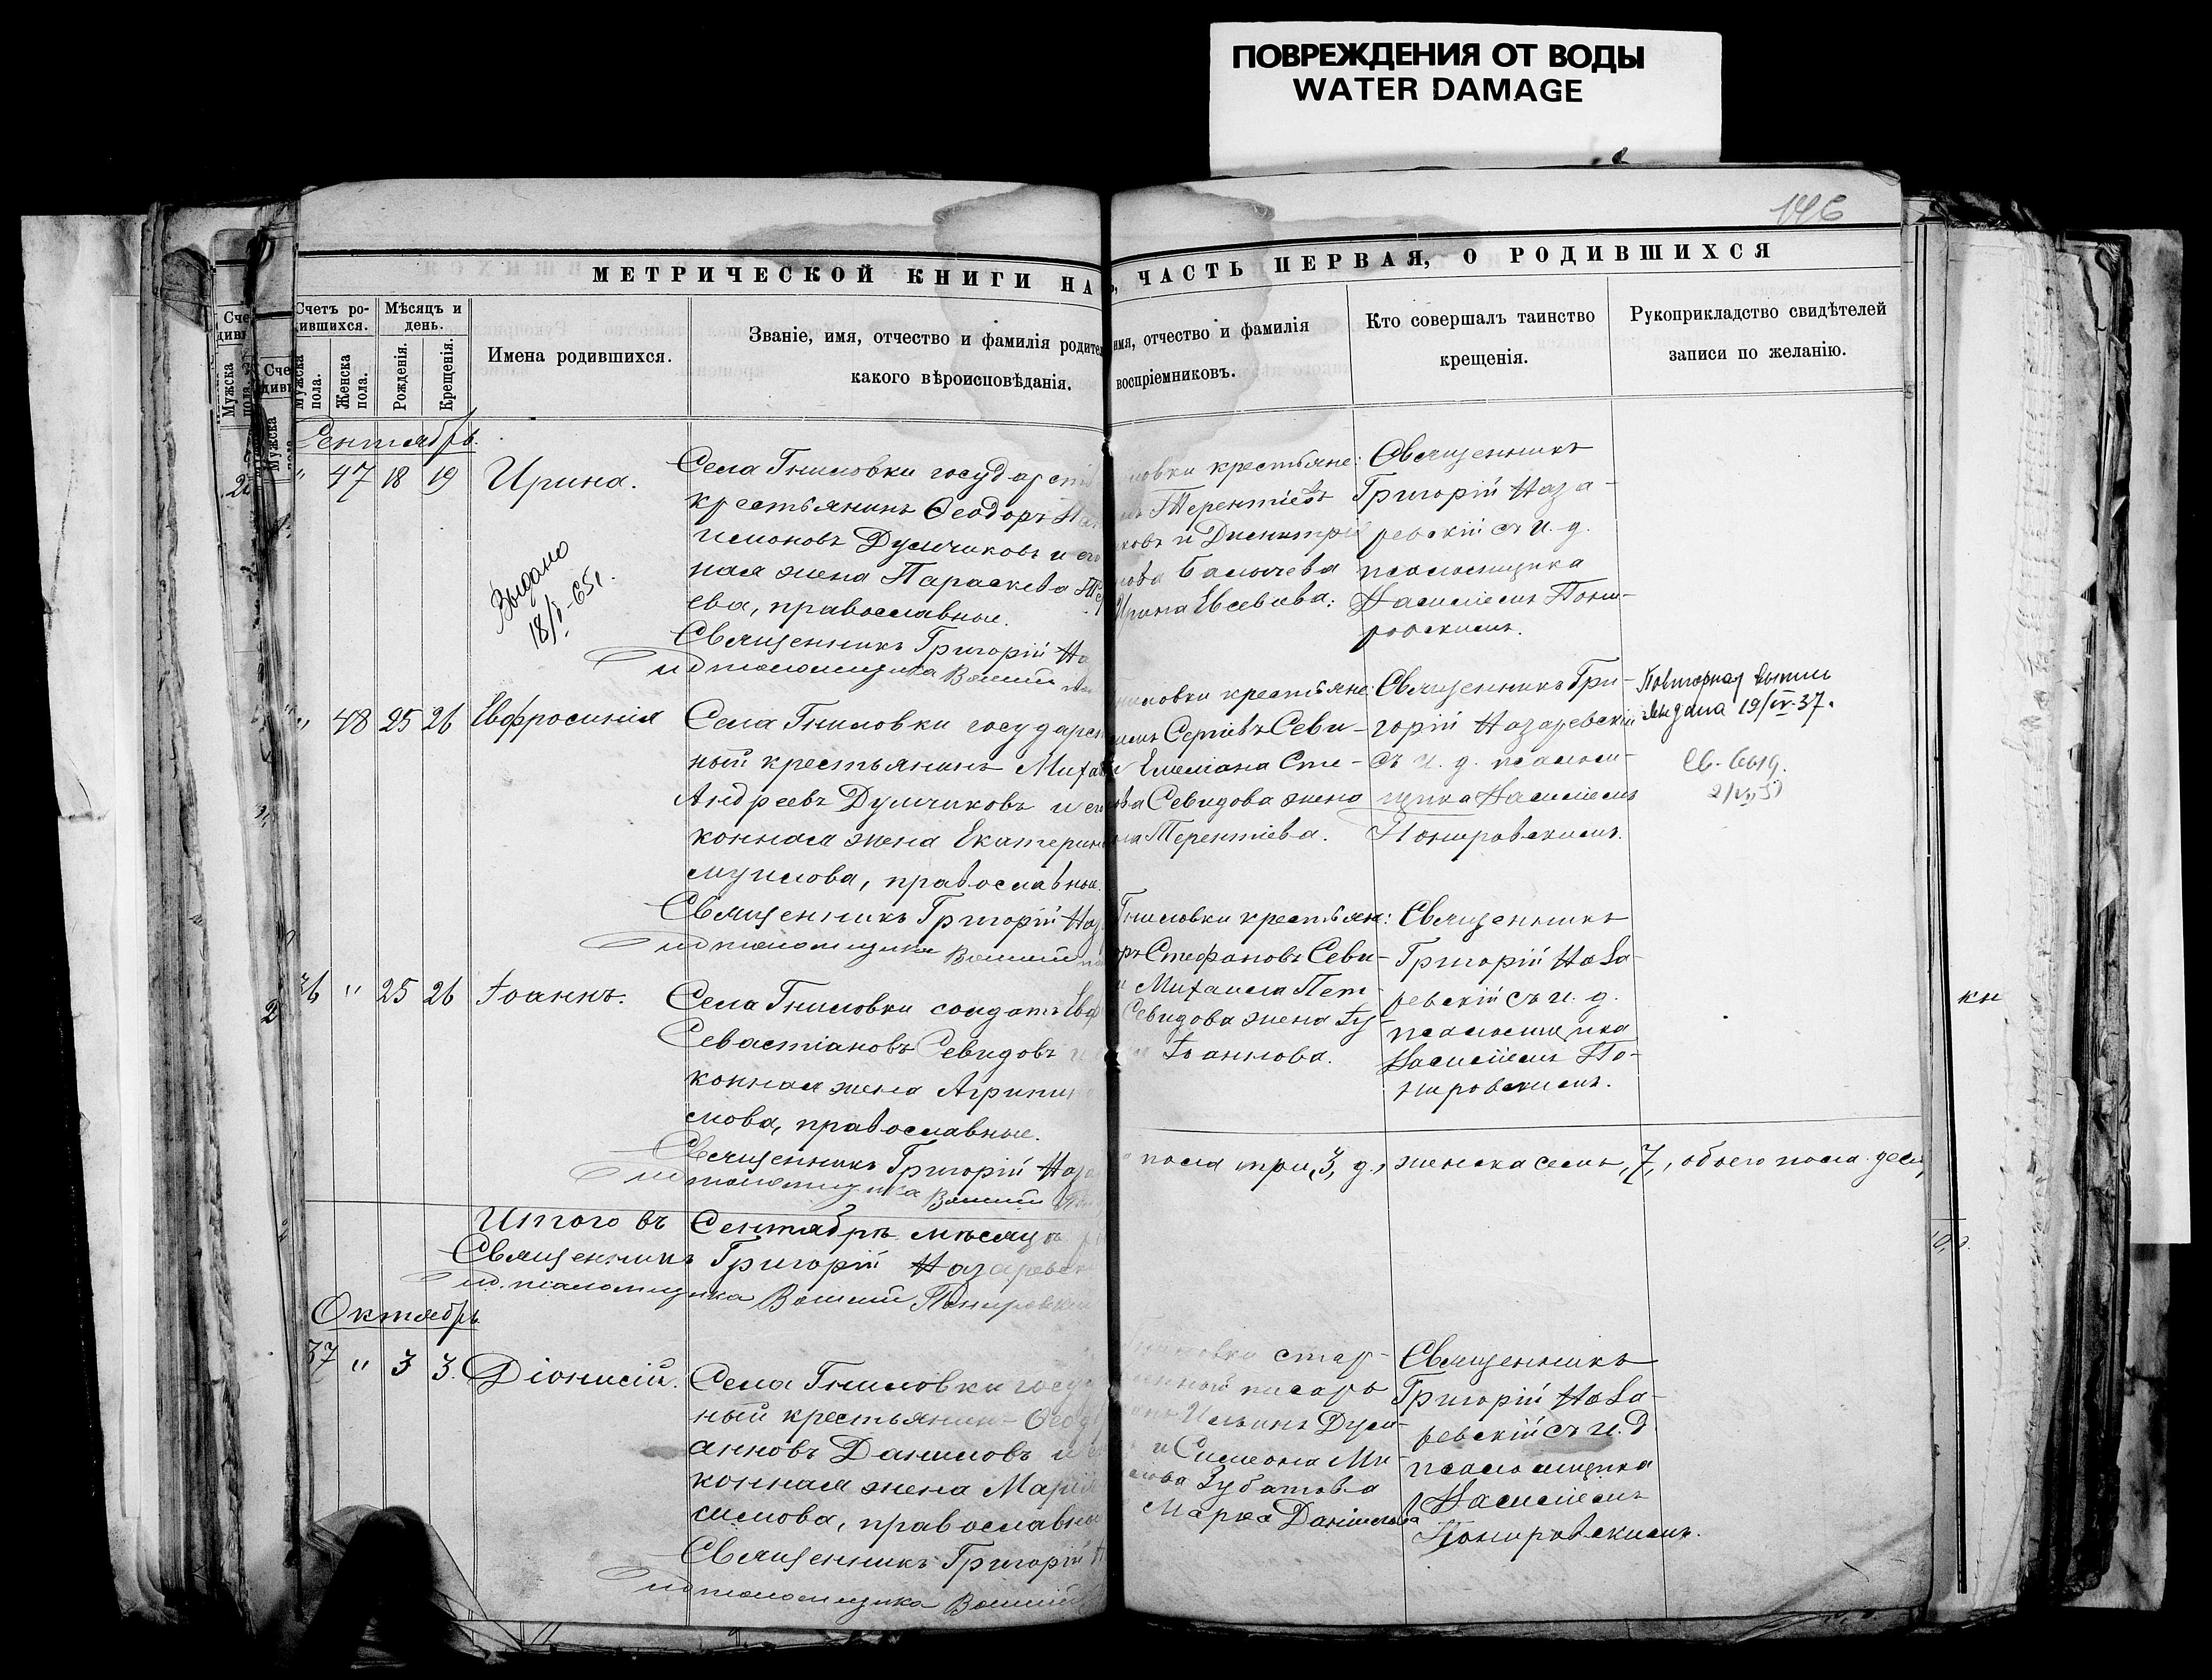 ПОВРЕЖДЕНИЯ ОТ ВОДЫ
WATER DAMAGE
146
МЕТРИЧЕСКОЙ КНИГИ НА
ЧАСТЬ ПЕРВАЯ, О РОДИВШИХСЯ
Счетъ ро-
дившихся.
Мѣсяцъ и
день.
Мужска
пола.
Женска
пола.
Рожденія.
Крещенія.
Имена родившихся.
Званіе, имя, отчество и фамилія родите
какого вѣроисповѣданія.
имя, отчество и фамилія
воспріемниковъ.
Кто совершалъ таинство
крещенія.
Рукоприкладство свидѣтелей
записи по желанію.
Сентябрь.
" 47 18 19 Ирина.
Выдано
18/V-65г.
Села Гниловки государств
крестьянинъ Ѳеодоръ
Думчиковъ и его
ная жена Параскева
ева, православные.
Священникъ Григорій На
и д псаломщика Василій
ловки крестьяне:
Терентіевъ
ковъ и Димитрі
Балычева
Ирина Евсевіева:
Священникъ
Григорій Наза-
ревскій съ и. д.
псаломщика
Василіемъ Пони-
ровскимъ.
" 48 25 26 Евфросинія
Села Гниловки государст
ный крестьянинъ Миха
Андреевъ Думчиковъ и ег
конная жена Екатерин
муилова, православные.
Священникъ Григорій Наз
и д псаломщика Василій
ниловки крестьяне:
Сергіевъ Севи-
Емеліана Сте-
ова Севидова жена
Терентіева.
Священникъ Гри-
горій Назаревскій
съ и. д. псаломщ-
щика Василіемъ
Понировскимъ.
Повторная выпись
выдана 19/IV-37.
36 " 25 26 Іоаннъ.
Села Гниловки солдатъ Евф
Севастіановъ Севидовъ и
конная жена Агрипин
мова, православные.
Священникъ Григорій Наза
и д псаломщика Василій
Гниловки крестьян:
оръ Стефановъ Севи-
и Михаила Пет
Севидова жена Іу-
Іоаннова.
Священникъ
Григорій Наза-
ревскій съ и. д.
псаломщика
Василіемъ По-
нировскимъ.
Итого въ Сентябрѣ мѣсяцѣ
пола три, 3, а, женска семь, 7, обоего пола деся
Священникъ Григорій Назаревск
и д. псаломщика Василій Понировскій
Октябрь
37 " 3 3. Діонисій.
Села Гниловки госуд
ный крестьянинъ Ѳеод
анновъ Даниловъ и
конная жена Марія
симова, православные
Священникъ Григорій
и д псаломщика Василій
стар-
писарь
Ильинъ Дум-
и Симеона Ми-
лова Зубатова
Марѳа Данилова
Священникъ
Григорій Наза-
ревскій съ и. д.
псаломщика
Василіемъ
Понировскимъ.